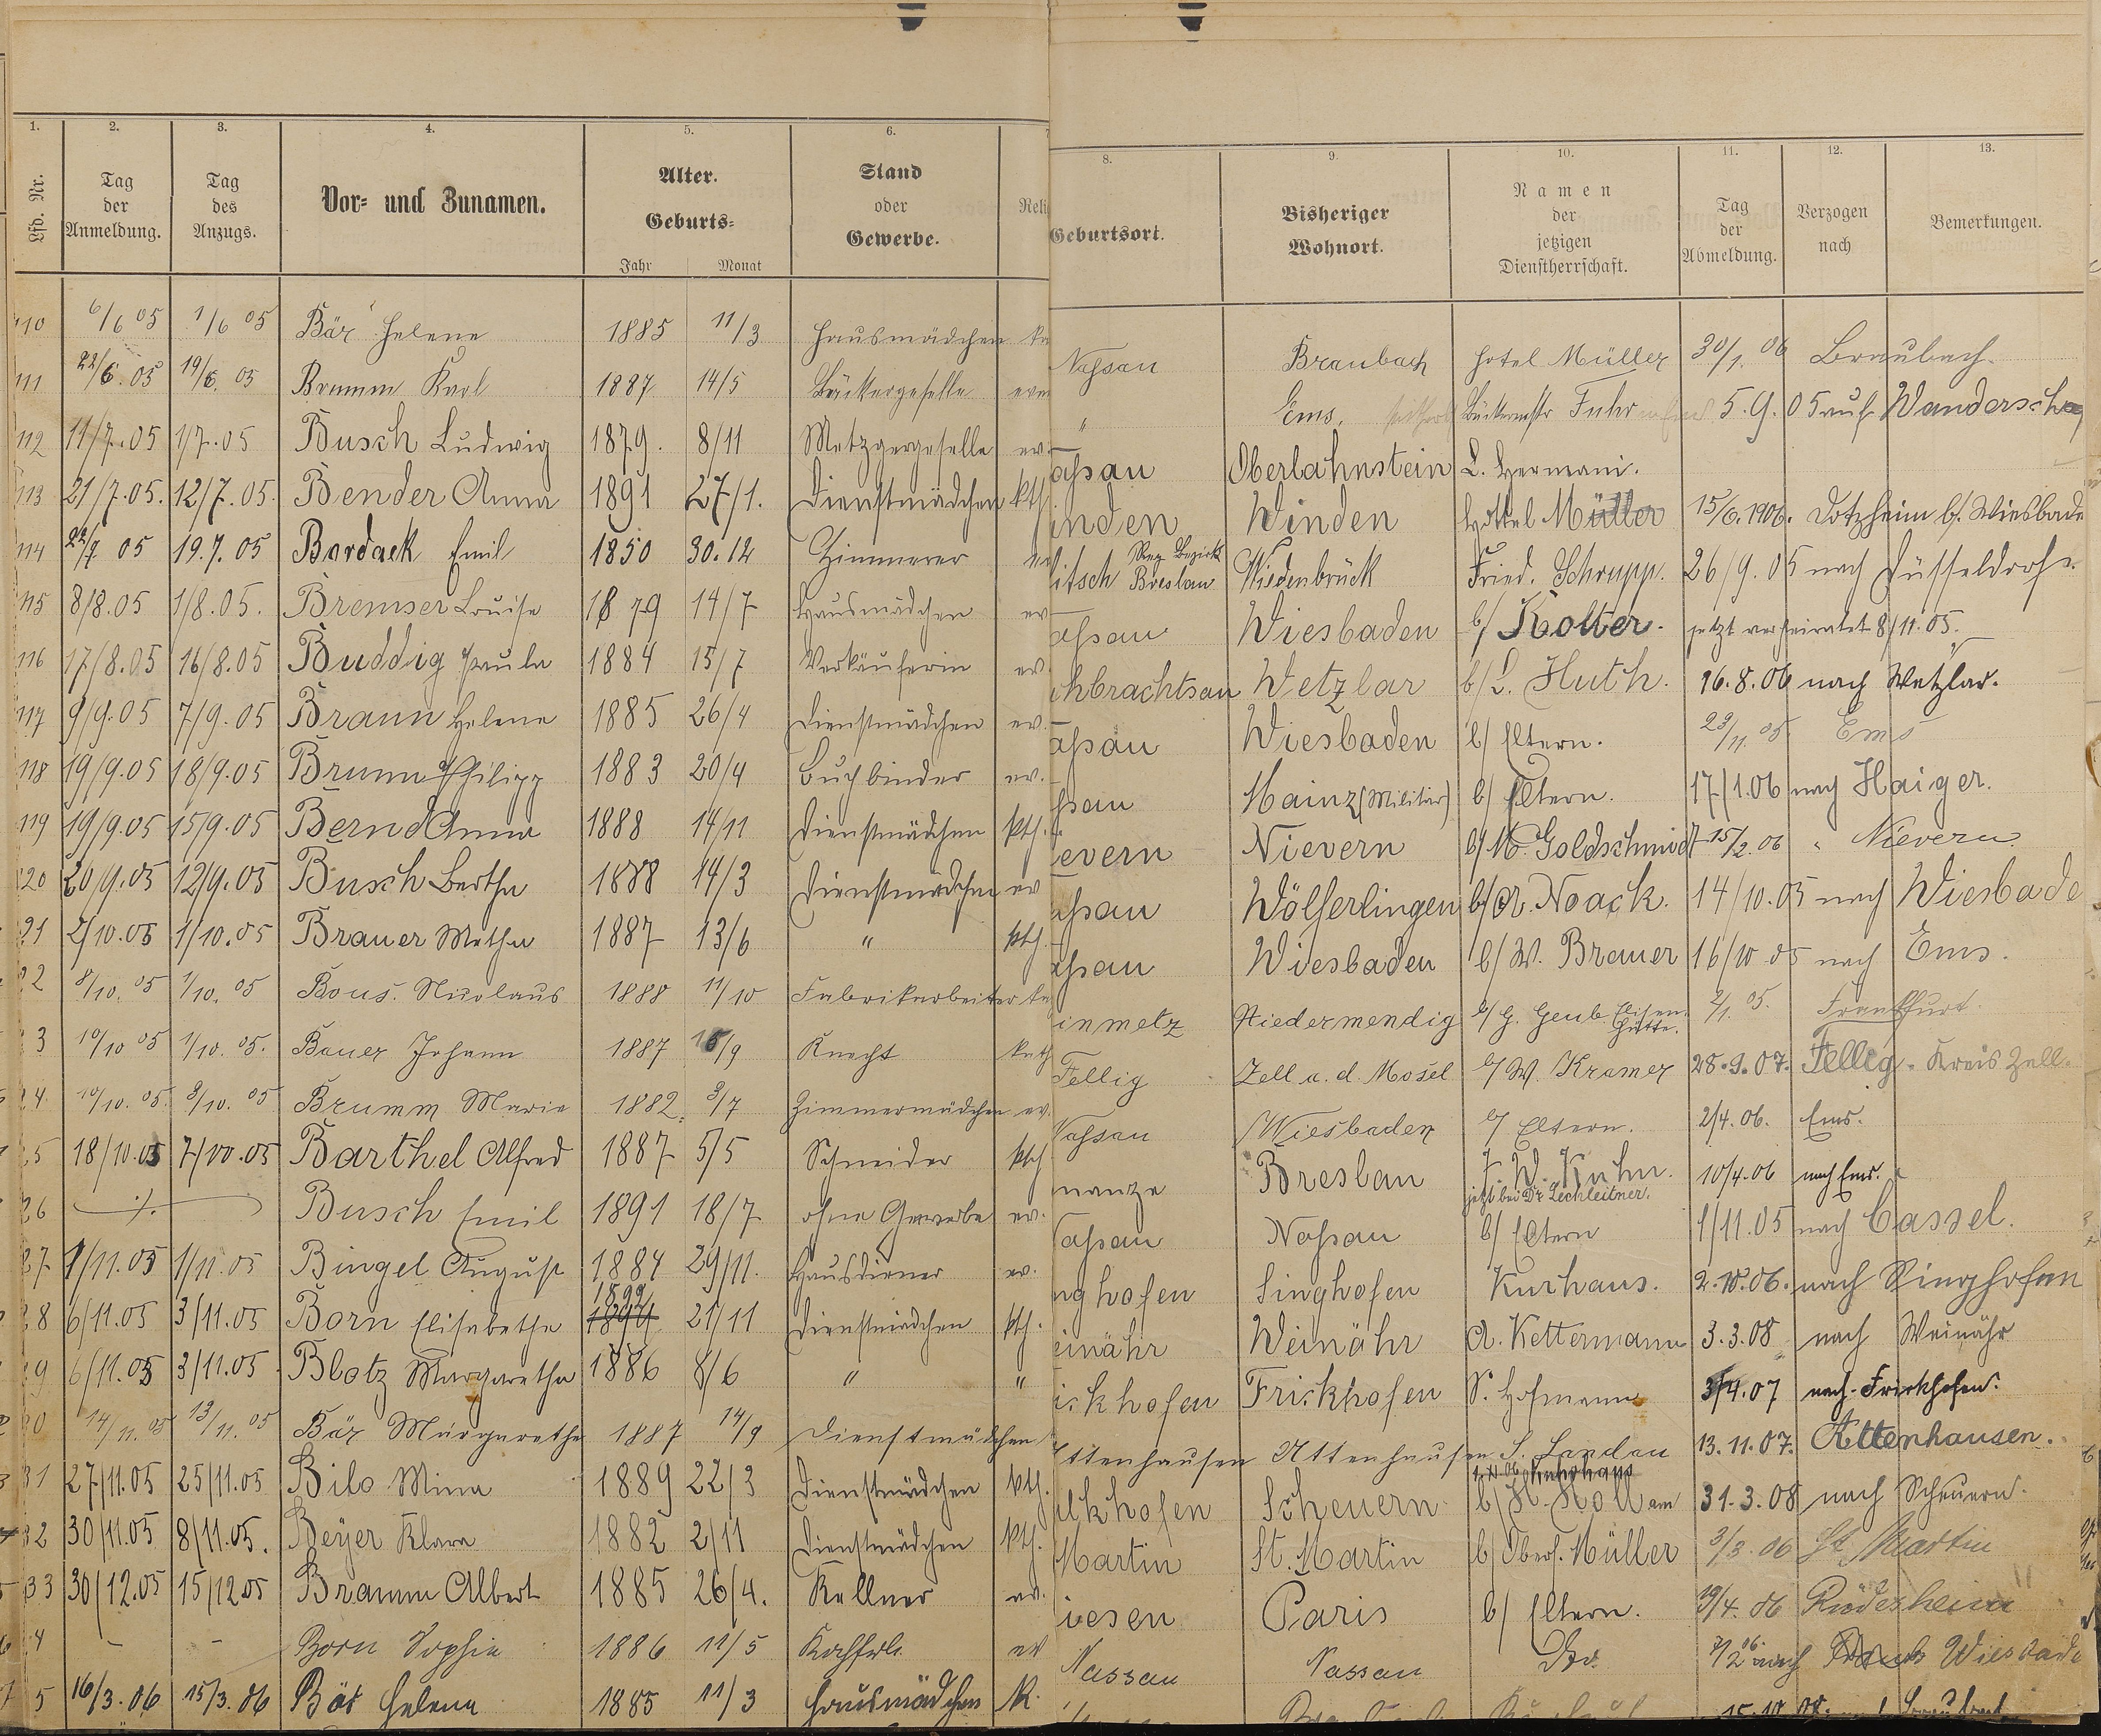 1. 2. 3. 4. 5. 6. 8. 9. 10. 11. 12. 13.
Lfd. Nr. Tag der Anmeldung. Tag des Anzugs. Vor- und Zunamen. Alter. Geburts- Jahr Monat Stand oder Gewerbe. Reli Geburtsort. Bisheriger Wohnort. Namen der jetzigen Dienstherrschaft. Tag der Abmeldung. Verzogen nach Bemerkungen.
110 6/6 05 1/6 05 Bär Helene 1885 11/3 Hausmädchen ka Nassau Braubach Hotel Müller 30/1. 06 Braubach.
111 22/6. 05 19/6. 05 Brumm Karl 1887 14/5 Bäckergeselle evan " Ems. Bäckermstr Fuhr 5.9.05 auf Wanderschaft
112 11/7.05 1/7.05 Busch Ludwig 1879. 8/11 Metzgergeselle ev. assau Oberlahnstein L. Hermani.
113 21/7.05. 12/7.05. Bender Anna 1891 27/1. Dienstmädchen kth inden Winden Hottel Müller 15/6.1906. Dotzheim b/. Wiesbade
114 22/7 05 19.7.05 Bordack Emil 1850 30.12 Zimmerer ev itsch Reg Bezirk Breslau Wiedenbrück Fried. Schrupp. 26/9.05 nach Düsseldorf.
115 8/8.05 1/8.05. Bremser Louise 1879 14/7 Hausmädchen ev assau Wiesbaden b/ Kolter. jetzt verheiratet 8/11.05.
116 17/8.05 16/8.05 Buddig Paula 1884 15/7 Verkäuferin ev. chbrachtsau Wetzlar b/ L. Huth. 16.8.06 nach Wetzlar.
117 9/9.05 7/9.05 Braun Helene 1885 26/4 Dienstmädchen ev. assau Wiesbaden b/ Eltern. 23/11. 05 Ems
118 19/9.05 18/9.05 Brumm Philipp 1883 20/4 Buchbinder ev. ssau Mainz (Militär) b/ Eltern. 17/1.06 nach Haiger.
119 19/9.05 15/9.05 Bernd Anna 1888 14/11 Dienstmädchen kth. evern Nievern b/ M. Goldschmidt 15/2.06 " Nievern
120 20/9.05 12/9.05 Busch Bertha 1888 14/3 Dienstmädchen ev assau Wölferlingen b/ A. Noack. 14/10.05 nach Wiesbade
21 2/10.05 1/10.05 Brauer Metha 1887 13/6 " kth. assau Wiesbaden b/ W. Brauer 16/10 05 nach Ems.
22 8/10. 05 1/10. 05 Bous. Nicolaus 1888 11/10 Fabrikarbeiter ka inmetz Niedermendig b/ G. Geub. Elisen Hütte. 2/1. 05. Frankfurt.
3 10/10 05 1/10. 05. Bauer Johann 1887 15/9 Knecht kath Fellig Zell a. d. Mosel b/ W. Kramer 28.9.07. Fellig. Kreis Zell.
24 10/10. 05. 3/10. 05 Brumm Marie 1882. 3/7 Zimmermädchen ev. Nassau Wiesbaden b/ Eltern. 2/4.06. Ems.
25 18/10.05 7/10.05 Barthel Alfred 1887 5/5 Schneider kth manze Breslau J. W. Kuhn. jetzt bei Dr. Lechleitner. 10/4.06 nach Ems.
26 ./. Busch Emil 1891 18/7 ohne Gewerbe ev. Nassau Nassau b/ Eltern 1/11.05 nach Cassel.
27 1/11.05 1/11.05 Bingel August 1884 29/11. Hausdiener ev. nghofen Singhofen Kurhaus. 2.10.06. nach Singhofen
28 6/11.05 3/11.05 Born Elisabethe 1892 21/11 Dienstmädchen kth. einähr Weinähr A. Kettermann 3.3.08 nach Weinähr
29 6/11.05 3/11.05 Blotz Margaretha 1886 8/6 " " ickhofen Frickhofen S. Hofmann 3/4.07 nach Frickhofen.
30 14/11. 05 13/11. 05 Bär Margarethe 1887 14/9 Dienstmädchen Attenhausen Attenhausen S. Landau 13.11.07. Attenhausen.
31 27/11.05 25/11.05 Bilo Mina 1889 22/3 Dienstmädchen kth. elkhofen Scheuern b/ H. Holl am 31.3.08 nach Scheuern.
32 30/11.05 8/11.05. Beyer Klara 1882 2/11 Dienstmädchen kth. Martin St. Martin b/ Oberf. Müller 3/3. 06 St Martin
33 30/12.05 15/12.05 Bramm Albert 1885 26/4. Kellner ev. iesen Paris b/ Eltern. 19/4. 06 Rüdesheim
4 - - Born Sophie 1886 11/5 ev Nassau Nassau Do. 7/2 06 nach Wiesbade
5 16/3.06 15/3.06 Bär Helena 1885 11/3 Hausmädchen K.